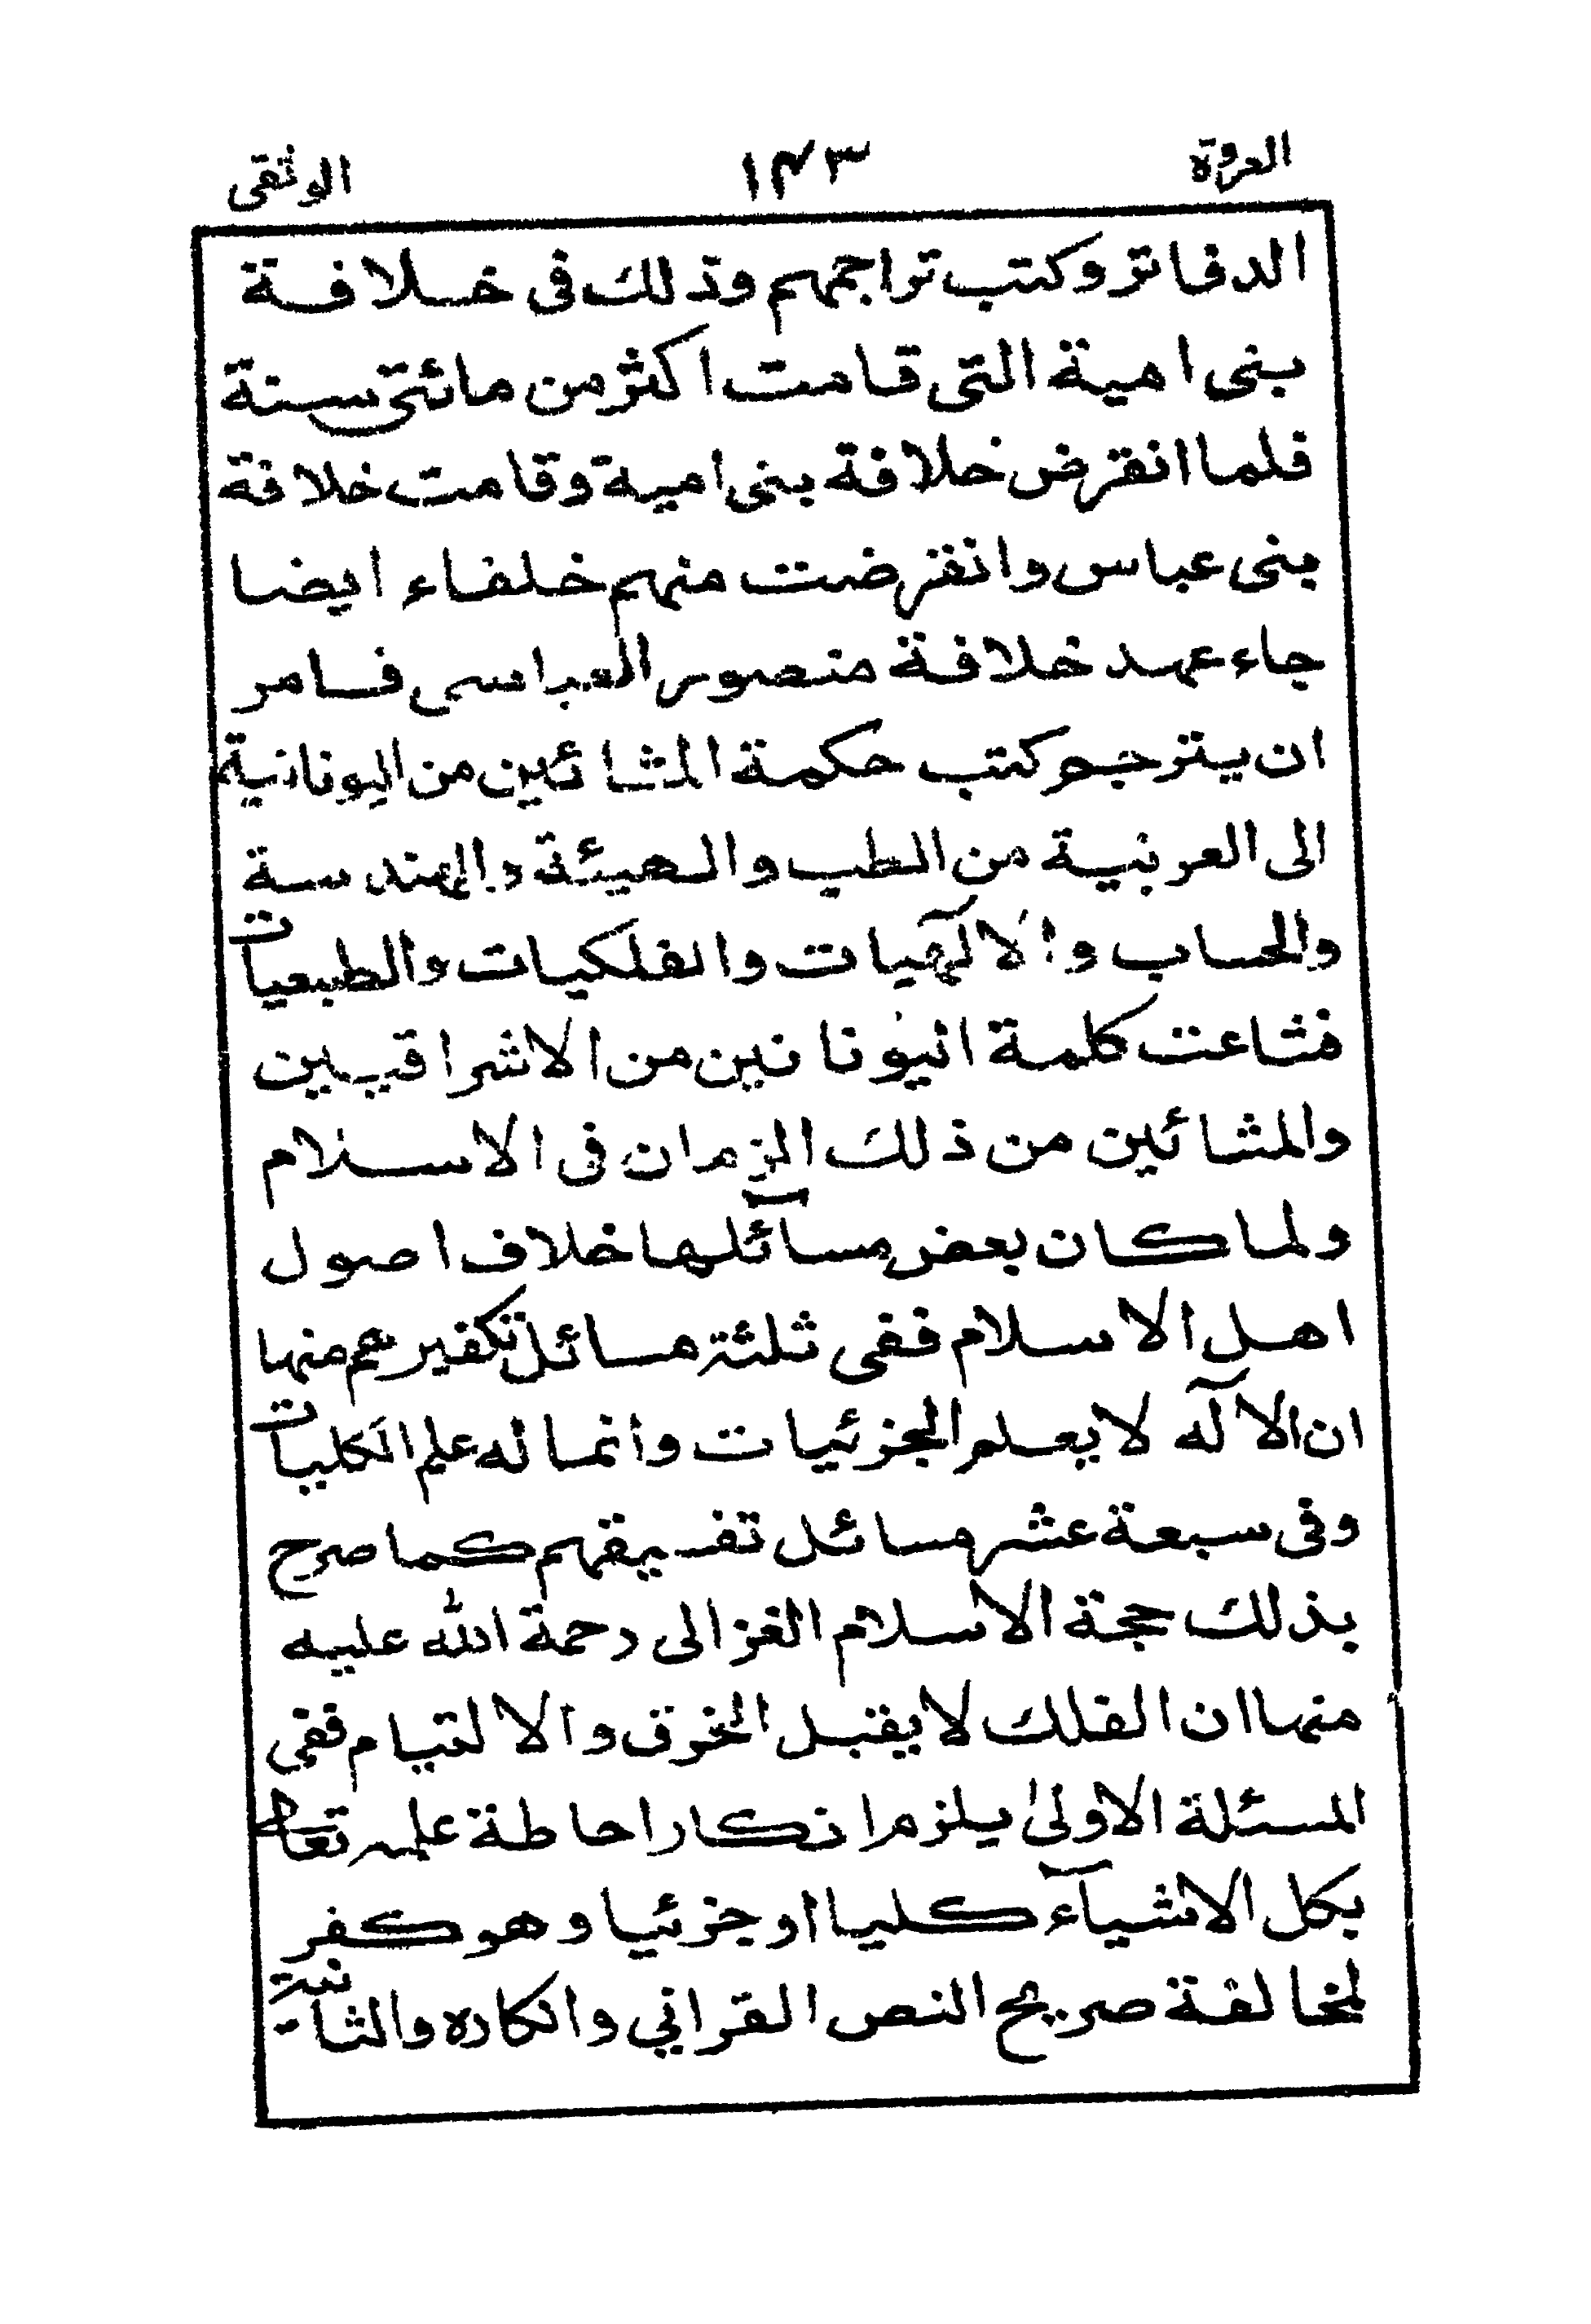 العروة ١٤٣ الوثقى
الدفاتر وكتب تراجمهم وذلك فى خلافة
بنى امية التى قامت اكثر من مائتى سنة
فلما انقرض خلافة بنى امية وقامت خلافة
بنى عباس وانقرضت منهم خلفاء ايضا
جاء عهد خلافة منصور العباسى فامر
ان يترجم كتب حكمة المشائين من اليونانية
الى العربية من الطب والهيئة والهندسة
والحساب والالٓهيات والفلكيات والطبعيات
فشاعت كلمة اليونانين من الاشراقيين
والمشائين من ذلك الزمان فى الاسلام
ولما كان بعض مسآئلها خلاف اصول
اهل الاسلام ففى ثلثة مسائل تكفيرهم منها
ان الالٓه لا يعلم الجزئيات وانما له علم الكليات
وفى سبعة عشر مسائل تفسيقهم كما صرح
بذلك حجة الاسلام الغزالى رحمة الله عليه
منها ان الفلك لا يقبل الخرق والالتيام ففى
المسئلة الاولىٰ يلزم انكار احاطة علمه تعالى
بكل الاشيآء كليا او جزئيا وهو كفر
لمخالفة صريح النص القرانى وانكاره والثانية